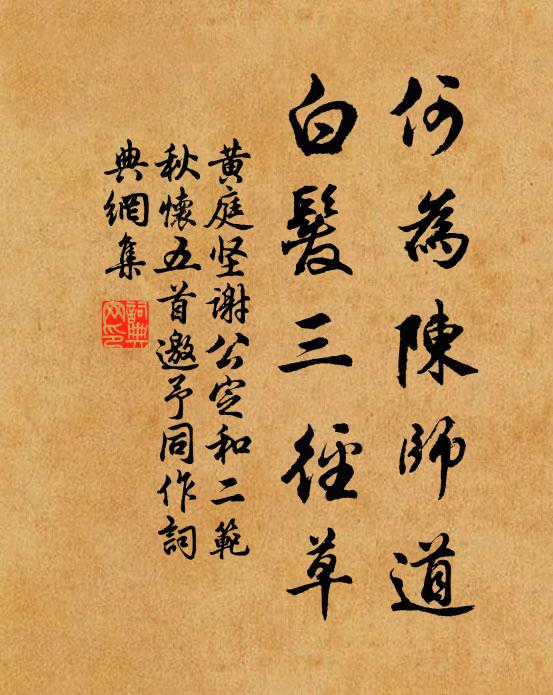 何為陳師道
白髮三徑草
黄庭坚謝公定和二範
秋懷五首邀予同作詞
典網集
詞典网印